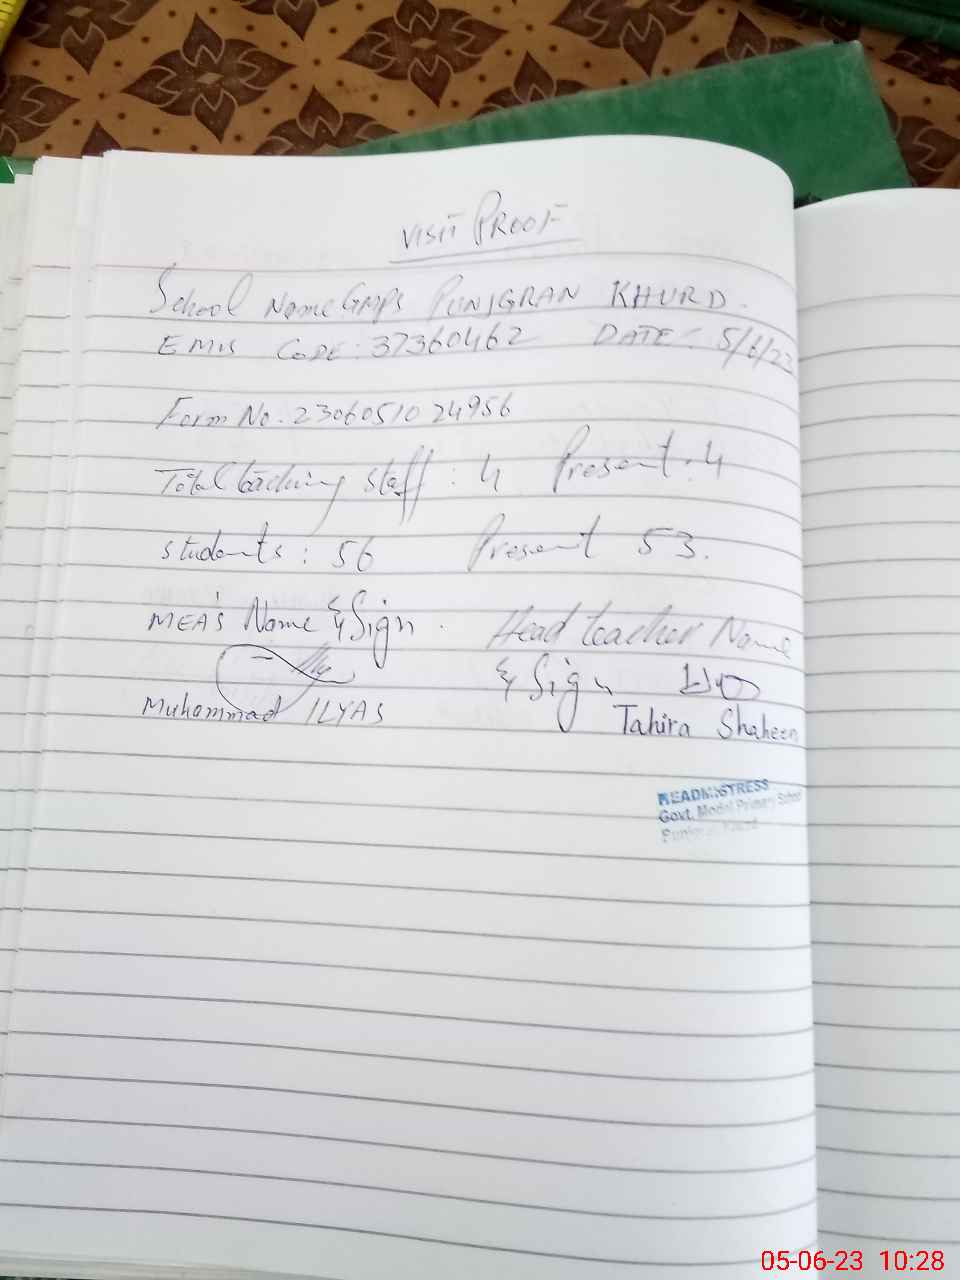 VISIT PROOF
School Name: GMPS PUNJGRAN KHURD.
EMIS CODE: 37360462 DATE: 5/6/23
Form No. 230605102 4956
Total teaching staff: 4 Present: 4
students: 56 Present 53.
MEA's Name & Sign. Head teacher Name
& Sign
Muhammad ILYAS Tahira Shaheen
HEADMISTRESS
Govt. Model Primary School
Khurd
05-06-23 10:28